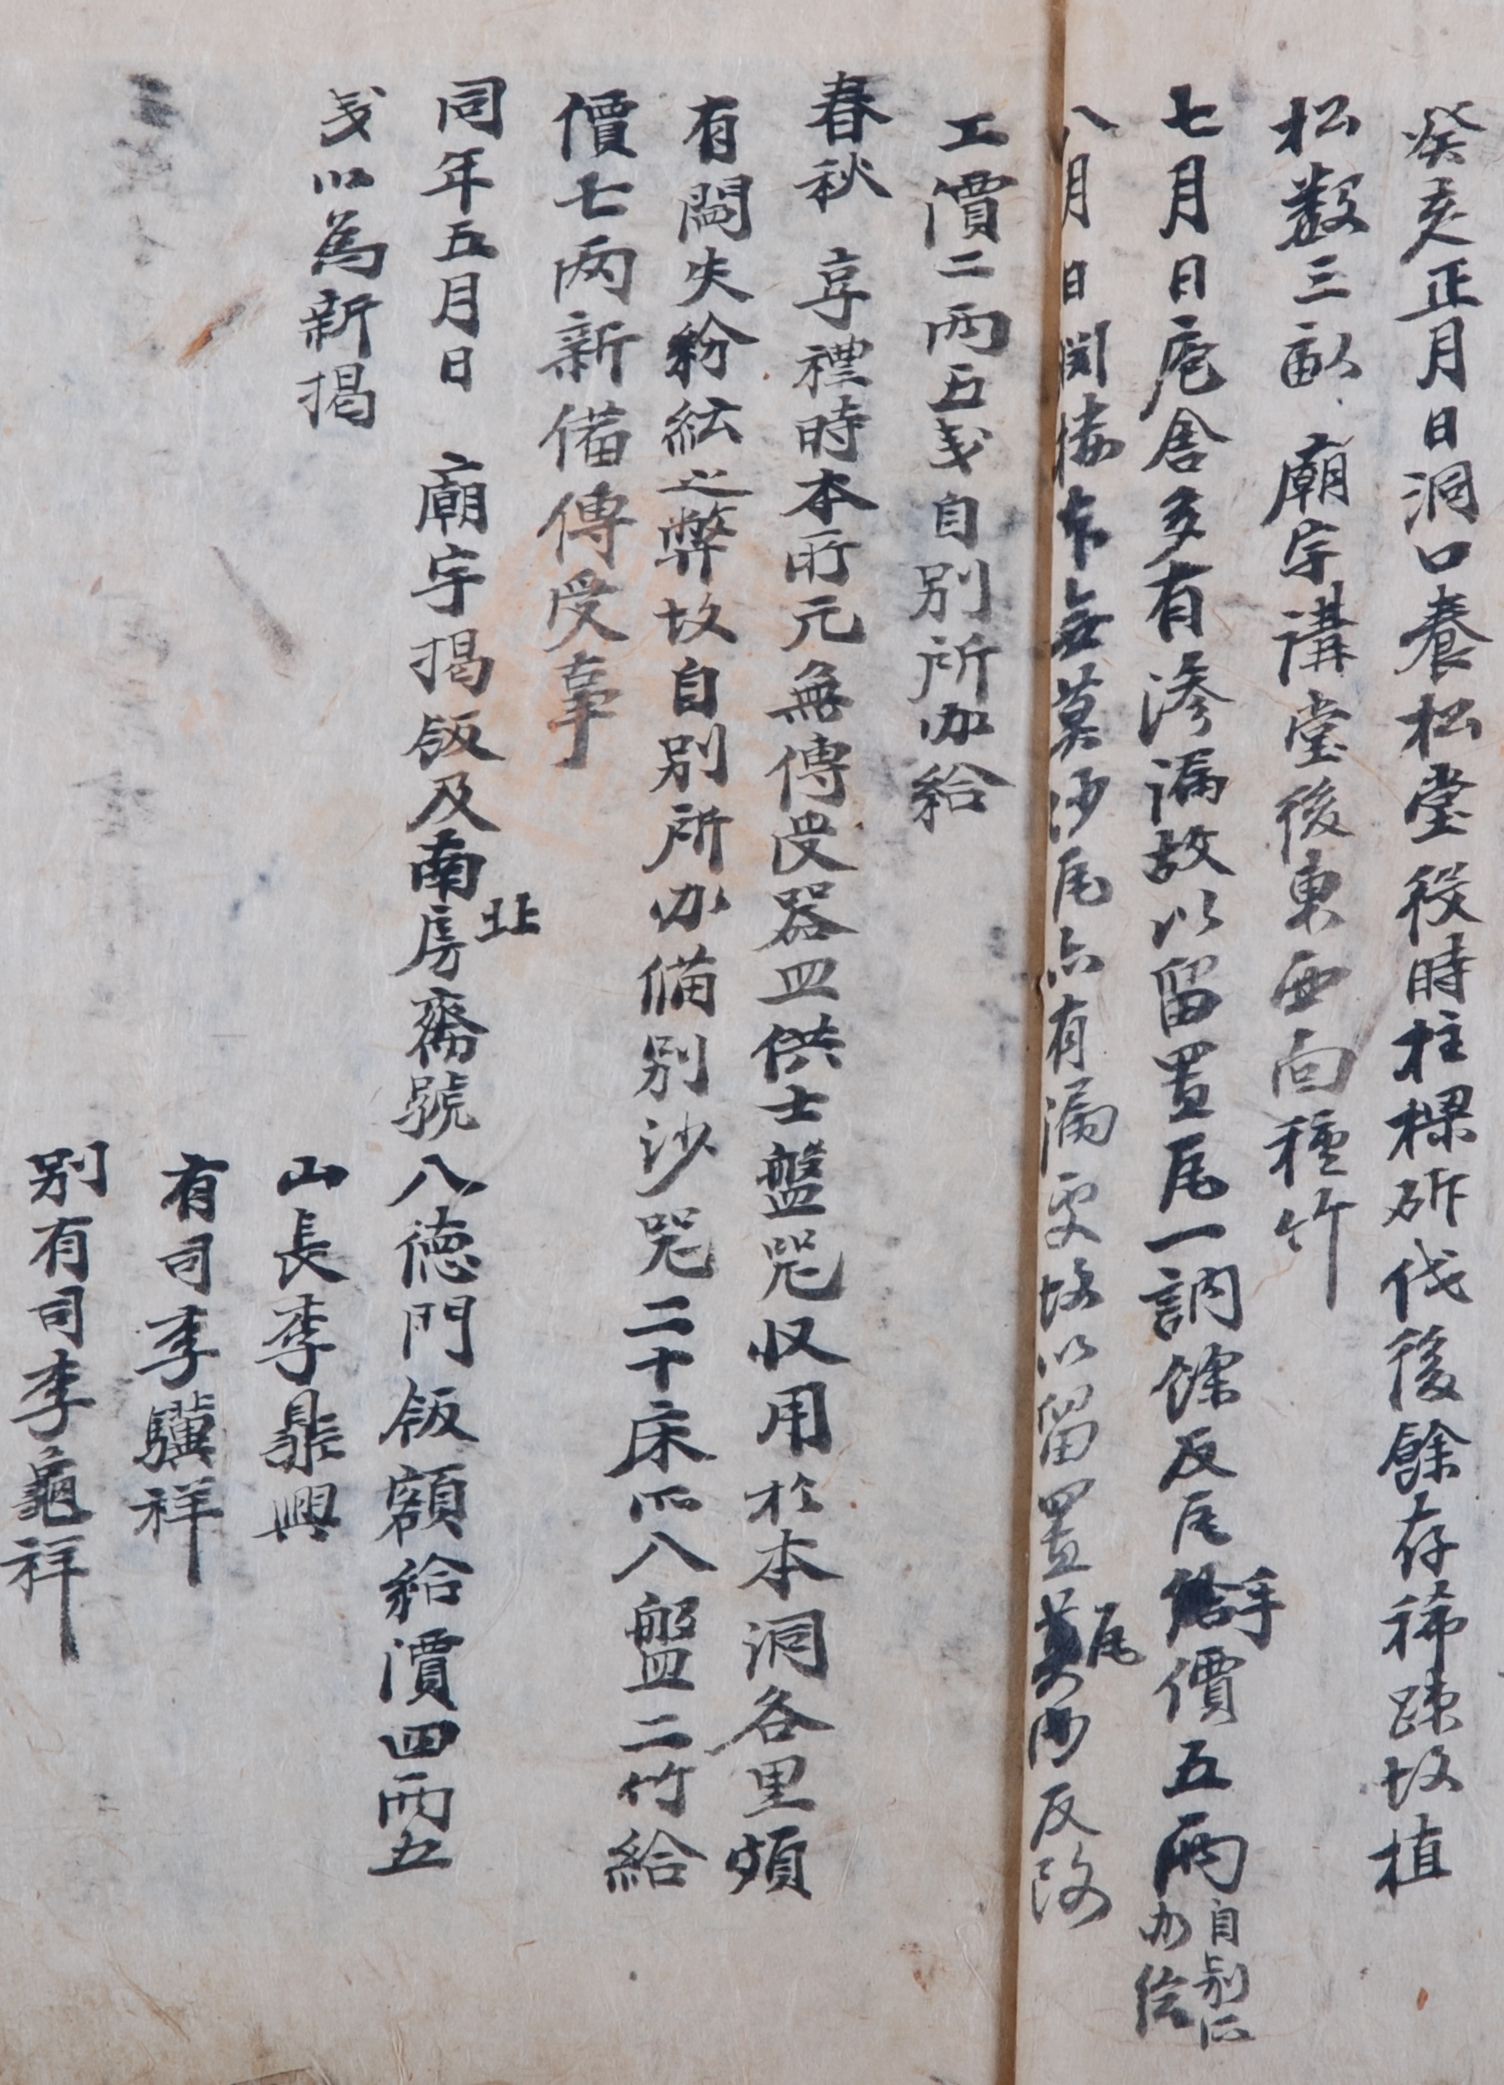 癸亥正月日洞口養松堂役時柱樑斫伐後餘存稀踈故植
松數三畝 廟宇講堂後東西向種竹
七月日庵舍多有滲漏故以留置瓦一訥餘反瓦手價五兩自别所办給
八月日閱樓本無莫沙瓦亦有漏雨故以留置瓦反改
工價二兩五戔自别所办給
春秋 享禮時本所元無傳受器皿供士盤咒収用於本洞各里頗
有闕失紛紜之弊故自别所办備别沙咒二十床所八盤二竹給
價七两新備傳受事
同年五月日 廟宇揭板及南北房齋號八德門板額給價四兩五
戔以為新揭
山長李鼎興
有司李驥祥
别有司李龜祥